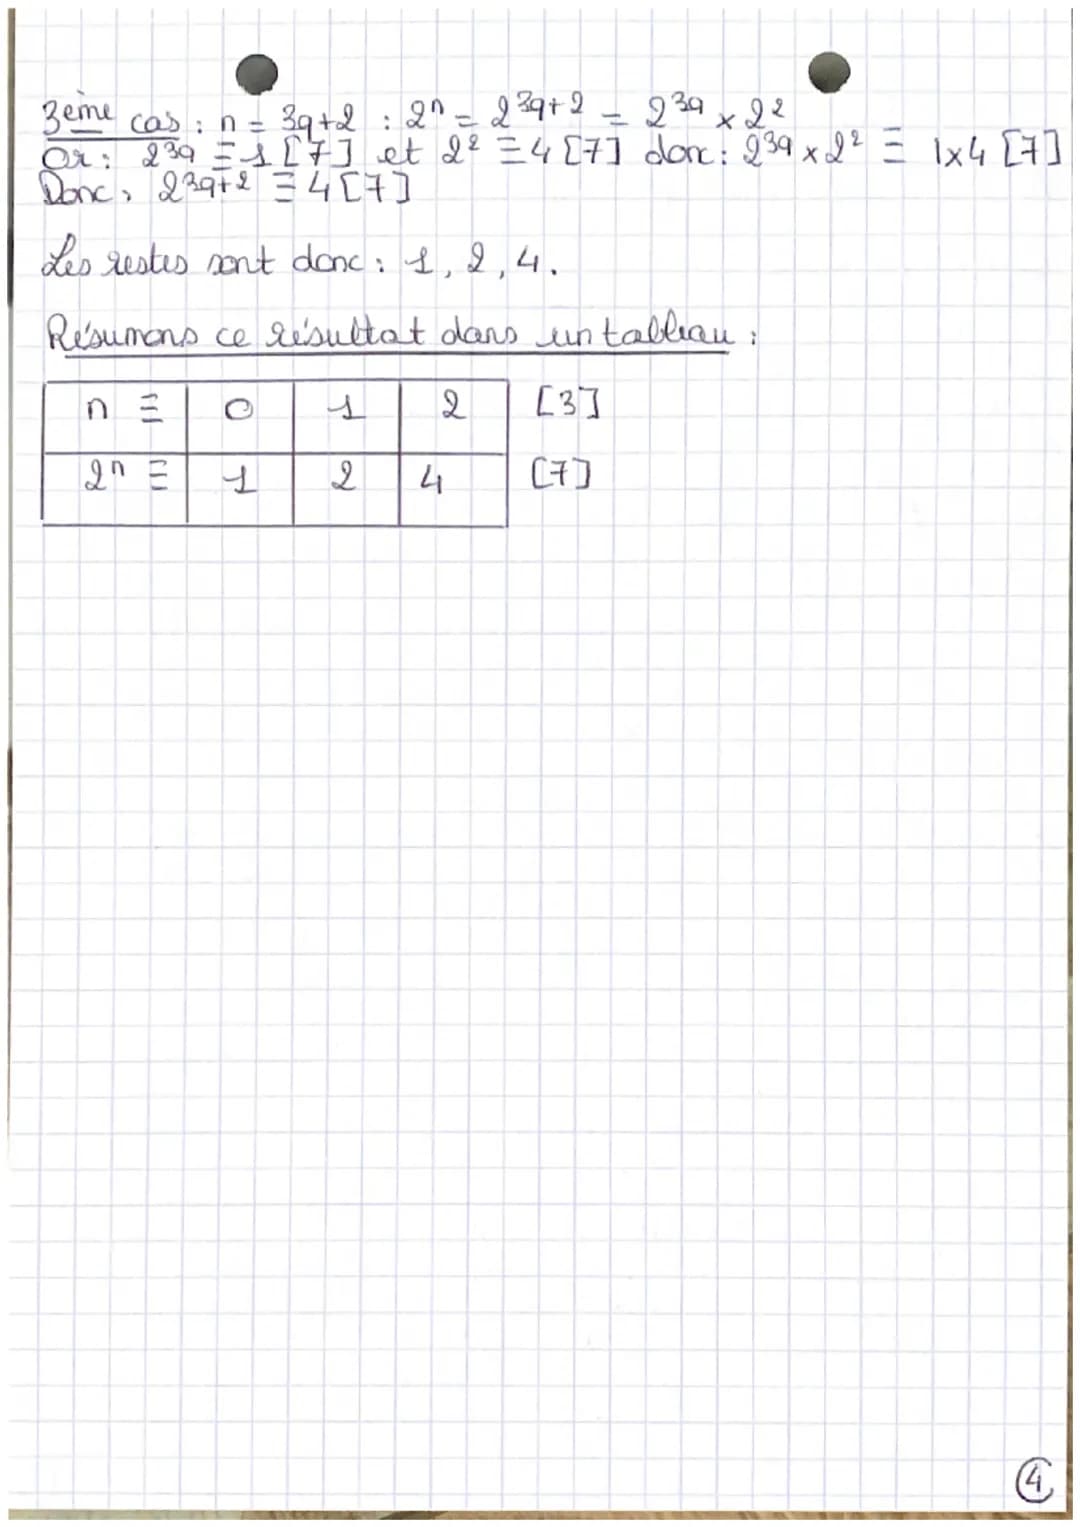 3ème cas : n = 3q+2 : 2ⁿ = 2³q+2 = 2³q × 2²
Or : 2³q ≡ 1 [7] et 2² ≡ 4 [7] donc : 2³q × 2² ≡ 1×4 [7]
Donc, 2³q+2 ≡ 4 [7]
Les restes sont donc : 1, 2, 4.
Résumons ce résultat dans un tableau :
n ≡ 0 1 2 [3]
2ⁿ ≡ 1 2 4 [7]
4